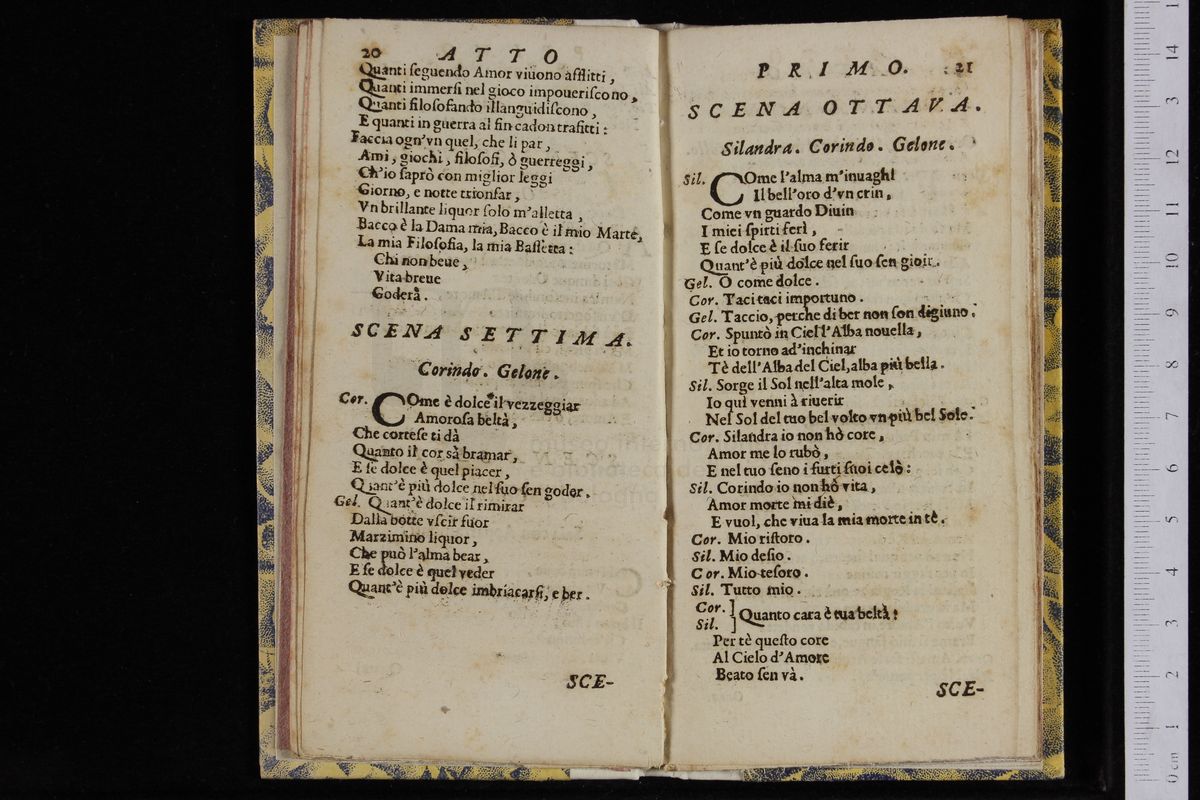 20 ATTO
Quanti ſeguendo Amor viuono afflitti,
Quanti immerſi nel gioco impoueriſcono,
Quanti filoſofando illanguidiſcono,
E quanti in guerra al fin cadon trafitti:
Faccia ogn'vn quel, che li par,
Ami, giochi, filoſofi, ò guerreggi,
Ch'io ſaprò con miglior leggi
Giorno, e notte trionfar,
Vn brillante liquor ſolo m'alletta,
Bacco è la Dama mia, Bacco è il mio Marte,
La mia Filoſofia, la mia Baſſetta:
Chi non beue,
Vita breue
Goderà.
SCENA SETTIMA.
Corindo. Gelone.
Cor. COme è dolce il vezzeggiar
Amoroſa beltà,
Che corteſe ti dà
Quanto il cor sà bramar,
E ſe dolce è quel piacer,
Quant'è più dolce nel ſuo ſen goder.
Gel. Quant'è dolce il rimirar
Dalla botte vſcir fuor
Marzimino liquor,
Che può l'alma bear,
E ſe dolce è quel veder
Quant'è più dolce imbriacarſi, e ber.
SCE-
PRIMO. 21
SCENA OTTAVA.
Silandra. Corindo. Gelone.
Sil. COme l'alma m'inuaghì
Il bell'oro d'vn crin,
Come vn guardo Diuin
I miei ſpirti ferì,
E ſe dolce è il ſuo ferir
Quant'è più dolce nel ſuo ſen gioir.
Gel. O come dolce.
Cor. Taci taci importuno.
Gel. Taccio, perche di ber non ſon digiuno.
Cor. Spuntò in Ciel l'Alba nouella,
Et io torno ad'inchinar
Tè dell'Alba del Ciel, alba più bella.
Sil. Sorge il Sol nell'alta mole,
Io quì venni à riuerir
Nel Sol del tuo bel volto vn più bel Sole.
Cor. Silandra io non hò core,
Amor me lo rubò,
E nel tuo ſeno i furti ſuoi celò:
Sil. Corindo io non hò vita,
Amor morte mi diè,
E vuol, che viua la mia morte in tè.
Cor. Mio riſtoro.
Sil. Mio deſio.
Cor. Mio teſoro.
Sil. Tutto mio.
Cor. Sil. ] Quanto cara è tua beltà:
Per tè queſto core
Al Cielo d'Amore
Beato ſen và.
SCE-